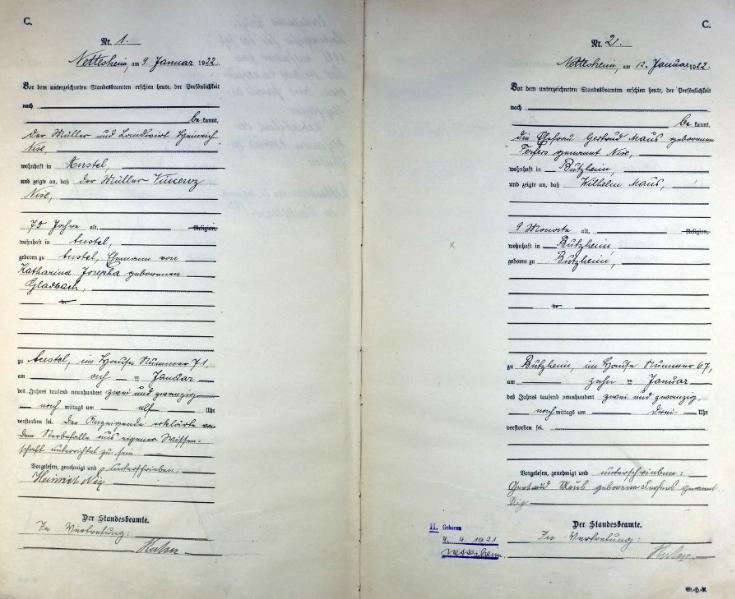 C.
Nr. 1.
Nettesheim, am 9. Januar 1922
Vor dem unterzeichneten Standesbeamten erschien heute, der Persönlichkeit
nach
be kannt,
der Müller und Landwirt Heinrich
wohnhaft in Anstel,
und zeigte an, daß der Müller Vincenz
70 Jahre alt, Religion,
wohnhaft in Anstel,
geboren zu Anstel, Ehemann von
Katharina Josepha geborenen
Gladbach,
zu Anstel, im Hause Nummer 71,
am Januar
des Jahres tausend neunhundert zwei und zwanzig
nach mittags um elf Uhr
verstorben sei. Der Anzeigende erklärte von
dem Sterbefalle aus eigener Wissen-
schaft unterrichtet zu sein
Vorgelesen, genehmigt und unterschrieben:
Heinrich
Der Standesbeamte.
In Vertretung:
C.
Nr. 2.
Nettesheim, am 12. Januar 1922.
Vor dem unterzeichneten Standesbeamten erschien heute, der Persönlichkeit
nach
be kannt,
die Ehefrau Gertrud Maus geborenen
genannt
wohnhaft in Butzheim,
und zeigte an, daß Wilhelm Maus,
9 Monate alt, Religion,
wohnhaft in Butzheim
geboren zu Butzheim,
zu Butzheim, im Hause Nummer 67,
am zehn Januar
des Jahres tausend neunhundert zwei und zwanzig
nach mittags um drei Uhr
verstorben sei.
Vorgelesen, genehmigt und unterschrieben:
Gertrud Maus geborene genannt
Der Standesbeamte.
In Vertretung:
H. Geboren
4. 4. 1921
Nettesheim
St.-H.-A.